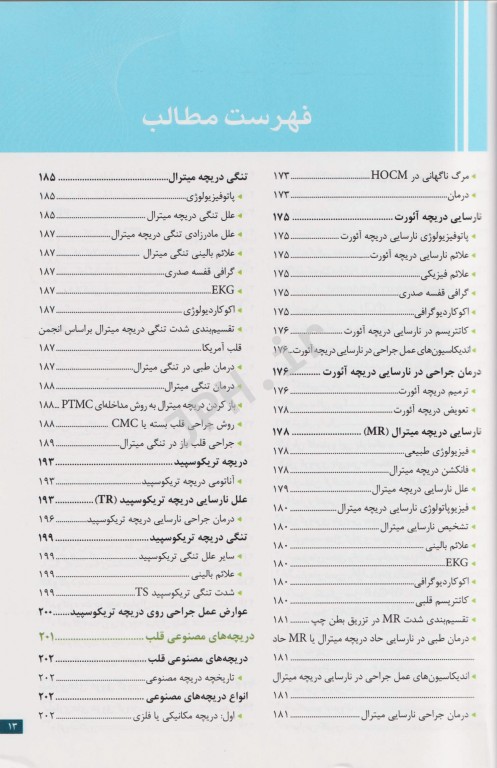 فهرست مطالب
مرگ ناگهانی در HOCM ............ ۱۷۳
درمان ............ ۱۷۳
نارسایی دریچه آئورت ............ ۱۷۵
پاتوفیزیولوژی نارسایی دریچه آئورت ............ ۱۷۵
علائم نارسایی دریچه آئورت ............ ۱۷۵
علائم فیزیکی ............ ۱۷۵
گرافی قفسه صدری ............ ۱۷۵
اکوکاردیوگرافی ............ ۱۷۵
کاتتریسم در نارسایی دریچه آئورت ............ ۱۷۶
اندیکاسیون‌های عمل جراحی در نارسایی دریچه آئورت .. ۱۷۶
درمان جراحی در نارسایی دریچه آئورت ............ ۱۷۶
ترمیم دریچه آئورت ............ ۱۷۶
تعویض دریچه آئورت ............ ۱۷۸
نارسایی دریچه میترال (MR) ............ ۱۷۸
فیزیولوژی طبیعی ............ ۱۷۸
فانکشن دریچه میترال ............ ۱۷۸
علل نارسایی دریچه میترال ............ ۱۷۹
فیزیوپاتولوژی نارسایی دریچه میترال ............ ۱۸۰
تشخیص نارسایی میترال ............ ۱۸۰
علائم بالینی ............ ۱۸۰
EKG ............ ۱۸۰
اکوکاردیوگرافی ............ ۱۸۰
کاتتریسم قلبی ............ ۱۸۰
تقسیم‌بندی شدت MR در تزریق بطن چپ ............ ۱۸۱
درمان طبی در نارسایی حاد دریچه میترال یا MR حاد
............ ۱۸۱
اندیکاسیون‌های عمل جراحی در نارسایی دریچه میترال
............ ۱۸۱
درمان جراحی نارسایی میترال ............ ۱۸۱
تنگی دریچه میترال ............ ۱۸۵
پاتوفیزیولوژی ............ ۱۸۵
علل تنگی دریچه میترال ............ ۱۸۵
علل مادرزادی تنگی دریچه میترال ............ ۱۸۷
علائم بالینی تنگی دریچه میترال ............ ۱۸۷
گرافی قفسه صدری ............ ۱۸۷
EKG ............ ۱۸۷
اکوکاردیولوژی ............ ۱۸۷
تقسیم‌بندی شدت تنگی دریچه میترال براساس انجمن
قلب آمریکا ............ ۱۸۷
درمان طبی در تنگی میترال ............ ۱۸۷
درمان تنگی میترال ............ ۱۸۸
باز کردن دریچه میترال به روش مداخله‌ای PTMC .. ۱۸۸
روش جراحی قلب بسته یا CMC ............ ۱۸۸
جراحی قلب باز در تنگی میترال ............ ۱۸۹
دریچه تریکوسپید ............ ۱۹۳
آناتومی دریچه تریکوسپید ............ ۱۹۳
علل نارسایی دریچه تریکوسپید (TR) ............ ۱۹۳
درمان جراحی نارسایی دریچه تریکوسپید ............ ۱۹۶
تنگی دریچه تریکوسپید ............ ۱۹۹
سایر علل تنگی دریچه تریکوسپید ............ ۱۹۹
علائم بالینی ............ ۱۹۹
شدت تنگی تریکوسپید TS ............ ۱۹۹
عوارض عمل جراحی روی دریچه تریکوسپید ...... ۲۰۰
دریچه‌های مصنوعی قلب ............ ۲۰۱
دریچه‌های مصنوعی قلب ............ ۲۰۲
تاریخچه دریچه مصنوعی ............ ۲۰۲
انواع دریچه‌های مصنوعی ............ ۲۰۲
اول: دریچه مکانیکی یا فلزی ............ ۲۰۲
۱۳